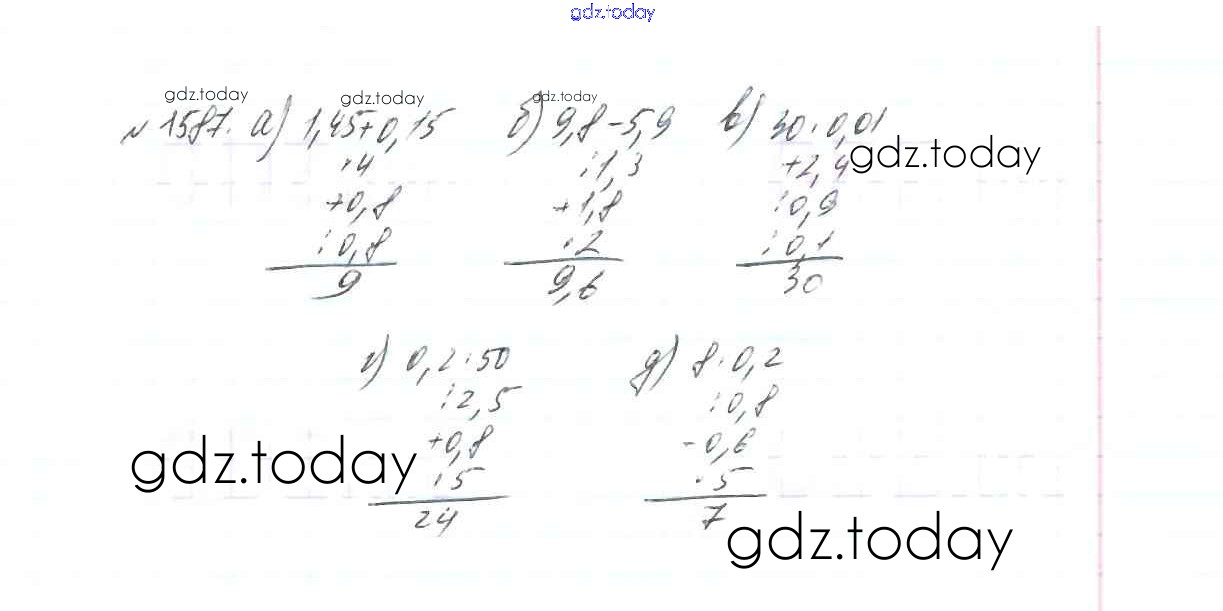 gdz.today
gdz.today gdz.today gdz.today
№1587. а) 1,45+0,15 б) 9,8-5,9 в) 30·0,01
·4 :1,3 +2,4 gdz.today
+0,8 +1,8 :0,9
:0,8 ·2 :0,1
9 9,6 30
г) 0,2·50 д) 8·0,2
:2,5 :0,8
+0,8 -0,6
gdz.today ·5 ·5
24 7 gdz.today